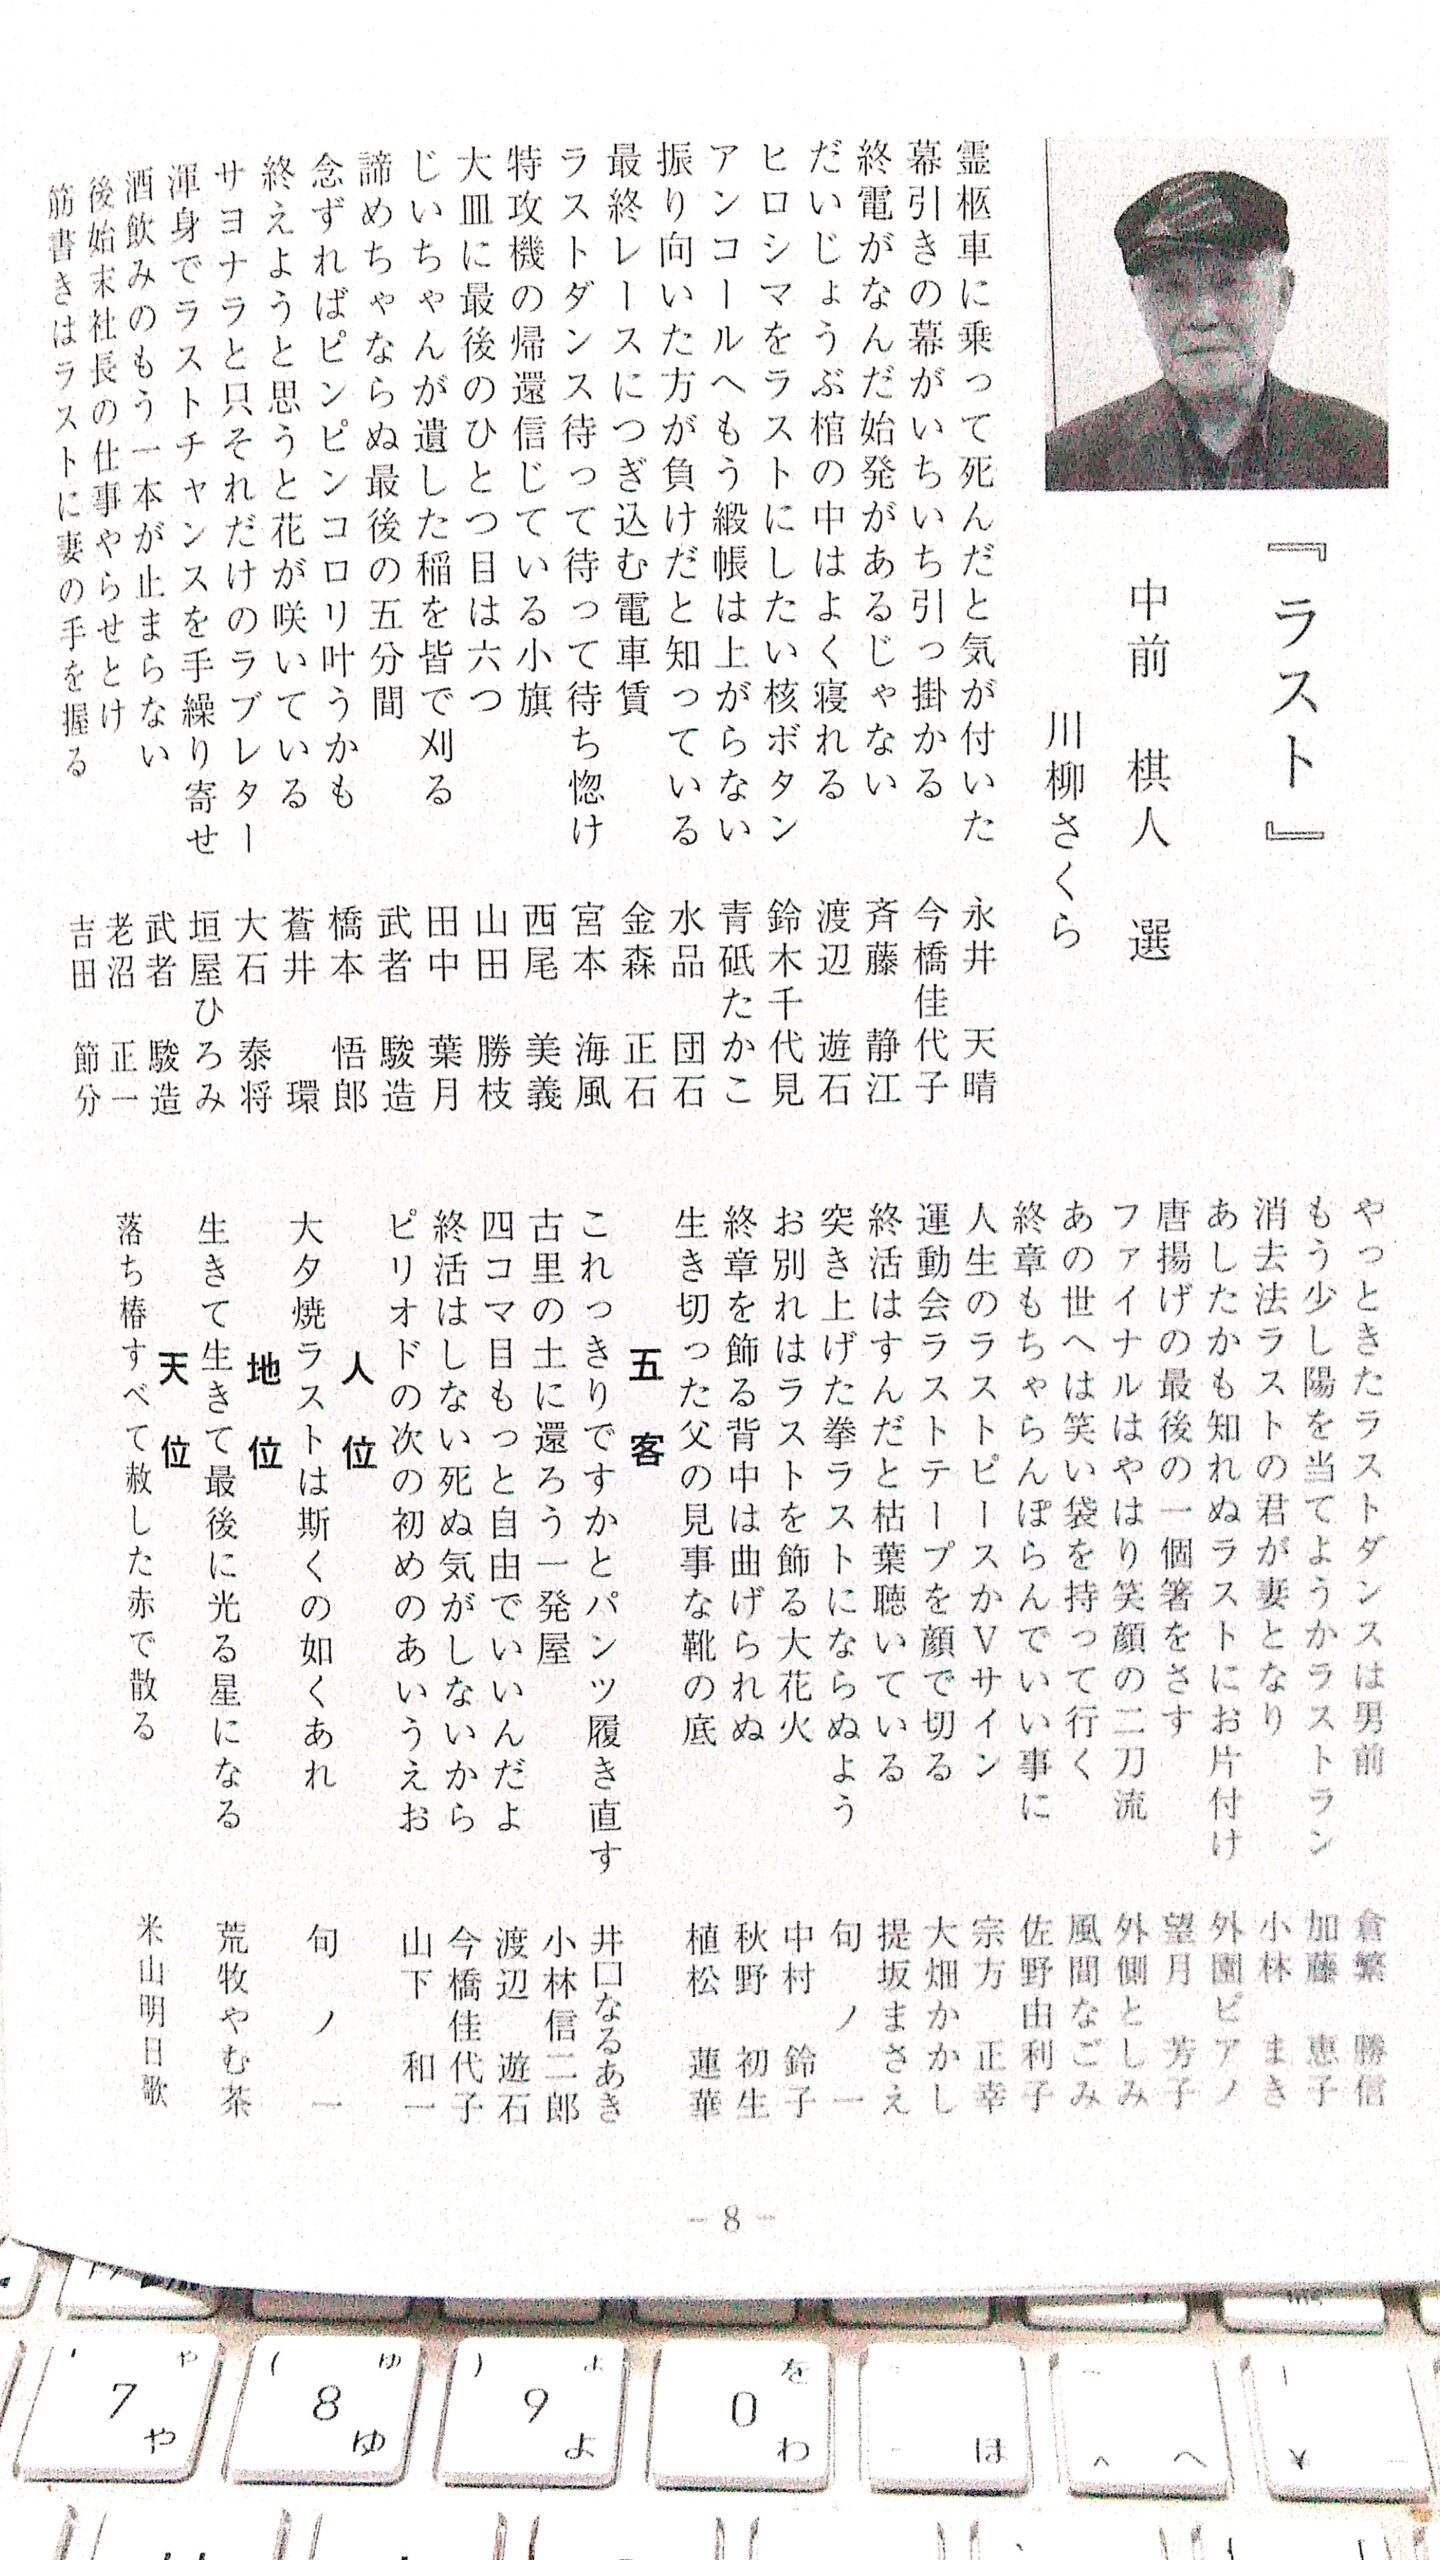 『ラスト』
中前 棋人 選
川柳さくら
霊柩車に乗って死んだと気が付いた 永井 天晴
幕引きの幕がいちいち引っ掛かる 今橋佳代子
終電がなんだ始発があるじゃない 斉藤 静江
だいじょうぶ棺の中はよく寝れる 渡辺 遊石
ヒロシマをラストにしたい核ボタン 鈴木千代見
アンコールへもう緞帳は上がらない 青砥たかこ
振り向いた方が負けだと知っている 水品 団石
最終レースにつぎ込む電車賃 金森 正石
ラストダンス待って待って待ち惚け 宮本 海風
特攻機の帰還信じている小旗 西尾 美義
大皿に最後のひとつ目は六つ 山田 勝枝
じいちゃんが遺した稲を皆で刈る 田中 葉月
諦めちゃならぬ最後の五分間 武者 駿造
念ずればピンピンコロリ叶うかも 橋本 悟郎
終えようと思うと花が咲いている 蒼井 環
サヨナラと只それだけのラブレター 大石 泰将
渾身でラストチャンスを手繰り寄せ 垣屋ひろみ
酒飲みのもう一本が止まらない 武者 駿造
後始末社長の仕事やらせとけ 老沼 正一
筋書きはラストに妻の手を握る 吉田 節分
やっときたラストダンスは男前 倉繁 勝信
もう少し陽を当てようかラストラン 加藤 恵子
消去法ラストの君が妻となり 小林 まき
あしたかも知れぬラストにお片付け 外園ピアノ
唐揚げの最後の一個箸をさす 望月 芳子
ファイナルはやはり笑顔の二刀流 外側としみ
あの世へは笑い袋を持って行く 風間なごみ
終章もちゃらんぽらんでいい事に 佐野由利子
人生のラストピースかVサイン 宗方 正幸
運動会ラストテープを顔で切る 大畑かかし
終活はすんだと枯葉聴いている 提坂まさえ
突き上げた拳ラストにならぬよう 旬ノ一
お別れはラストを飾る大花火 中村 鈴子
終章を飾る背中は曲げられぬ 秋野 初生
生き切った父の見事な靴の底 植松 蓮華
五客
これっきりですかとパンツ履き直す 井口なるあき
古里の土に還ろう一発屋 小林信二郎
四コマ目もっと自由でいいんだよ 渡辺 遊石
終活はしない死ぬ気がしないから 今橋佳代子
ピリオドの次の初めのあいうえお 山下 和一
人位
大夕焼ラストは斯くの如くあれ 旬ノ一
地位
生きて生きて最後に光る星になる 荒牧やむ茶
天位
落ち椿すべて赦した赤で散る 米山明日歌
－8－
' や 7 や
( ゆ 8 ゆ
) よ 9 よ
を 0 わ
ほ
^ へ
¥